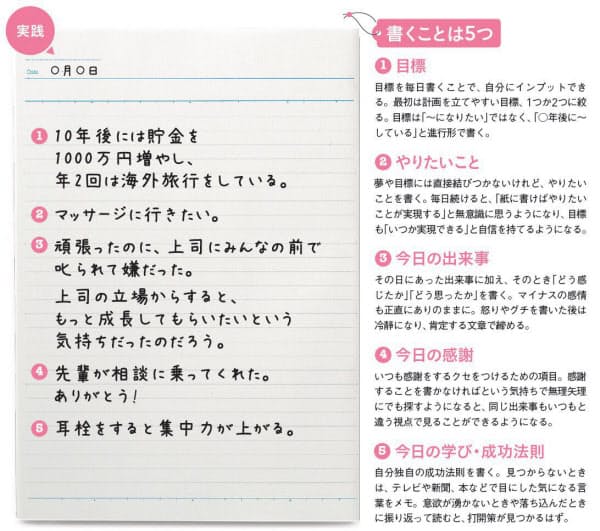 実践
Date 〇月〇日
1 10年後には貯金を
1000万円増やし、
年2回は海外旅行をしている。
2 マッサージに行きたい。
3 頑張ったのに、上司にみんなの前で
叱られて嫌だった。
上司の立場からすると、
もっと成長してもらいたいという
気持ちだったのだろう。
4 先輩が相談に乗ってくれた。
ありがとう!
5 耳栓をすると集中力が上がる。
書くことは5つ
1 目標
目標を毎日書くことで、自分にインプットでき
る。最初は計画を立てやすい目標、1つか2つに絞
る。目標は「〜になりたい」ではなく、「〇年後に〜
している」と進行形で書く。
2 やりたいこと
夢や目標には直接結びつかないけれど、やりたい
ことを書く。毎日続けると、「紙に書けばやりたい
ことが実現する」と無意識に思うようになり、目標
も「いつか実現できる」と自信を持てるようになる。
3 今日の出来事
その日にあった出来事に加え、そのとき「どう感
じたか」「どう思ったか」を書く。マイナスの感情
も正直にありのままに。怒りやグチを書いた後は
冷静になり、肯定する文章で締める。
4 今日の感謝
いつも感謝をするクセをつけるための項目。感謝
することを書かなければという気持ちで無理矢理
にでも探すようになると、同じ出来事もいつもと
違う視点で見ることができるようになる。
5 今日の学び・成功法則
自分独自の成功法則を書く。見つからないとき
は、テレビや新聞、本などで目にした気になる言
葉をメモ。意欲が湧かないときや落ち込んだとき
に振り返って読むと、打開策が見つかるはず。